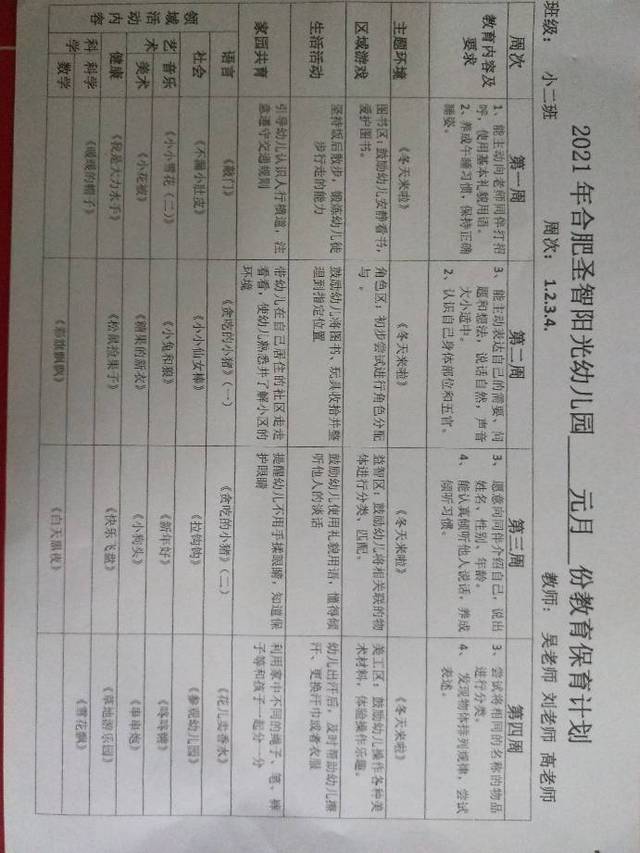 2021年合肥圣智阳光幼儿园 元月 份教育保育计划
班级： 小二班 周次： 1.2.3.4. 教师： 吴老师 刘老师 高老师
周次 第一周 第二周 第三周 第四周
教育内容及要求
1、能主动向老师同伴打招
呼，使用基本礼貌用语。
2、养成午睡习惯，保持正确
睡姿。
3、能主动表达自己的需要、问
题和想法，说话自然，声音
大小适中。
2、认识自己身体部位和五官。
3、愿意向同伴介绍自己，说出
姓名、性别、年龄。
4、能认真倾听他人说话，养成
倾听习惯。
3、尝试将相同的名称的物品
进行分类。
4、发现物体排列规律，尝试
表述。
主题环境 《冬天来啦》 《冬天来啦》 《冬天来啦》 《冬天来啦》
区域游戏
图书区：鼓励幼儿安静看书，
爱护图书。
角色区：初步尝试进行角色分配
与。
益智区：鼓励幼儿将相关联的物
体进行分类、匹配。
美工区：鼓励幼儿操作各种美
术材料，体验操作乐趣。
生活活动
坚持饭后散步，锻炼幼儿徒
步行走的能力
鼓励幼儿将图书、玩具收拾并整
理到指定位置
鼓励幼儿使用礼貌用语，懂得倾
听他人的谈话
幼儿出汗后，及时帮助幼儿擦
汗、更换汗巾或者衣服
家园共育
引导幼儿认识人行横道，注
意遵守交通规则
带幼儿在自己居住的社区走走
看看，使幼儿熟悉并了解小区的
环境
提醒幼儿不用手揉眼睛，知道保
护眼睛
利用家中不同的绳子、笔、裤
子等和孩子一起分一分
领域活动内容
语言 《敲门》 《贪吃的小猪》（一） 《贪吃的小猪》（二） 《花儿卖香水》
社会 《不露小肚皮》 《小小仙女棒》 《拉钩钩》 《参观幼儿园》
艺术 音乐 《小小雪花（二）》 《小兔和狼》 《新年好》
美术 《小花被》 《糖果的新衣》 《小狗头》 《串串炮》
健康 《我是大力水手》 《松鼠捡果子》 《快乐飞盘》 《草地游乐园》
科学 科学 《暖暖的帽子》 《雪花飘》
数学 《白天黑夜》